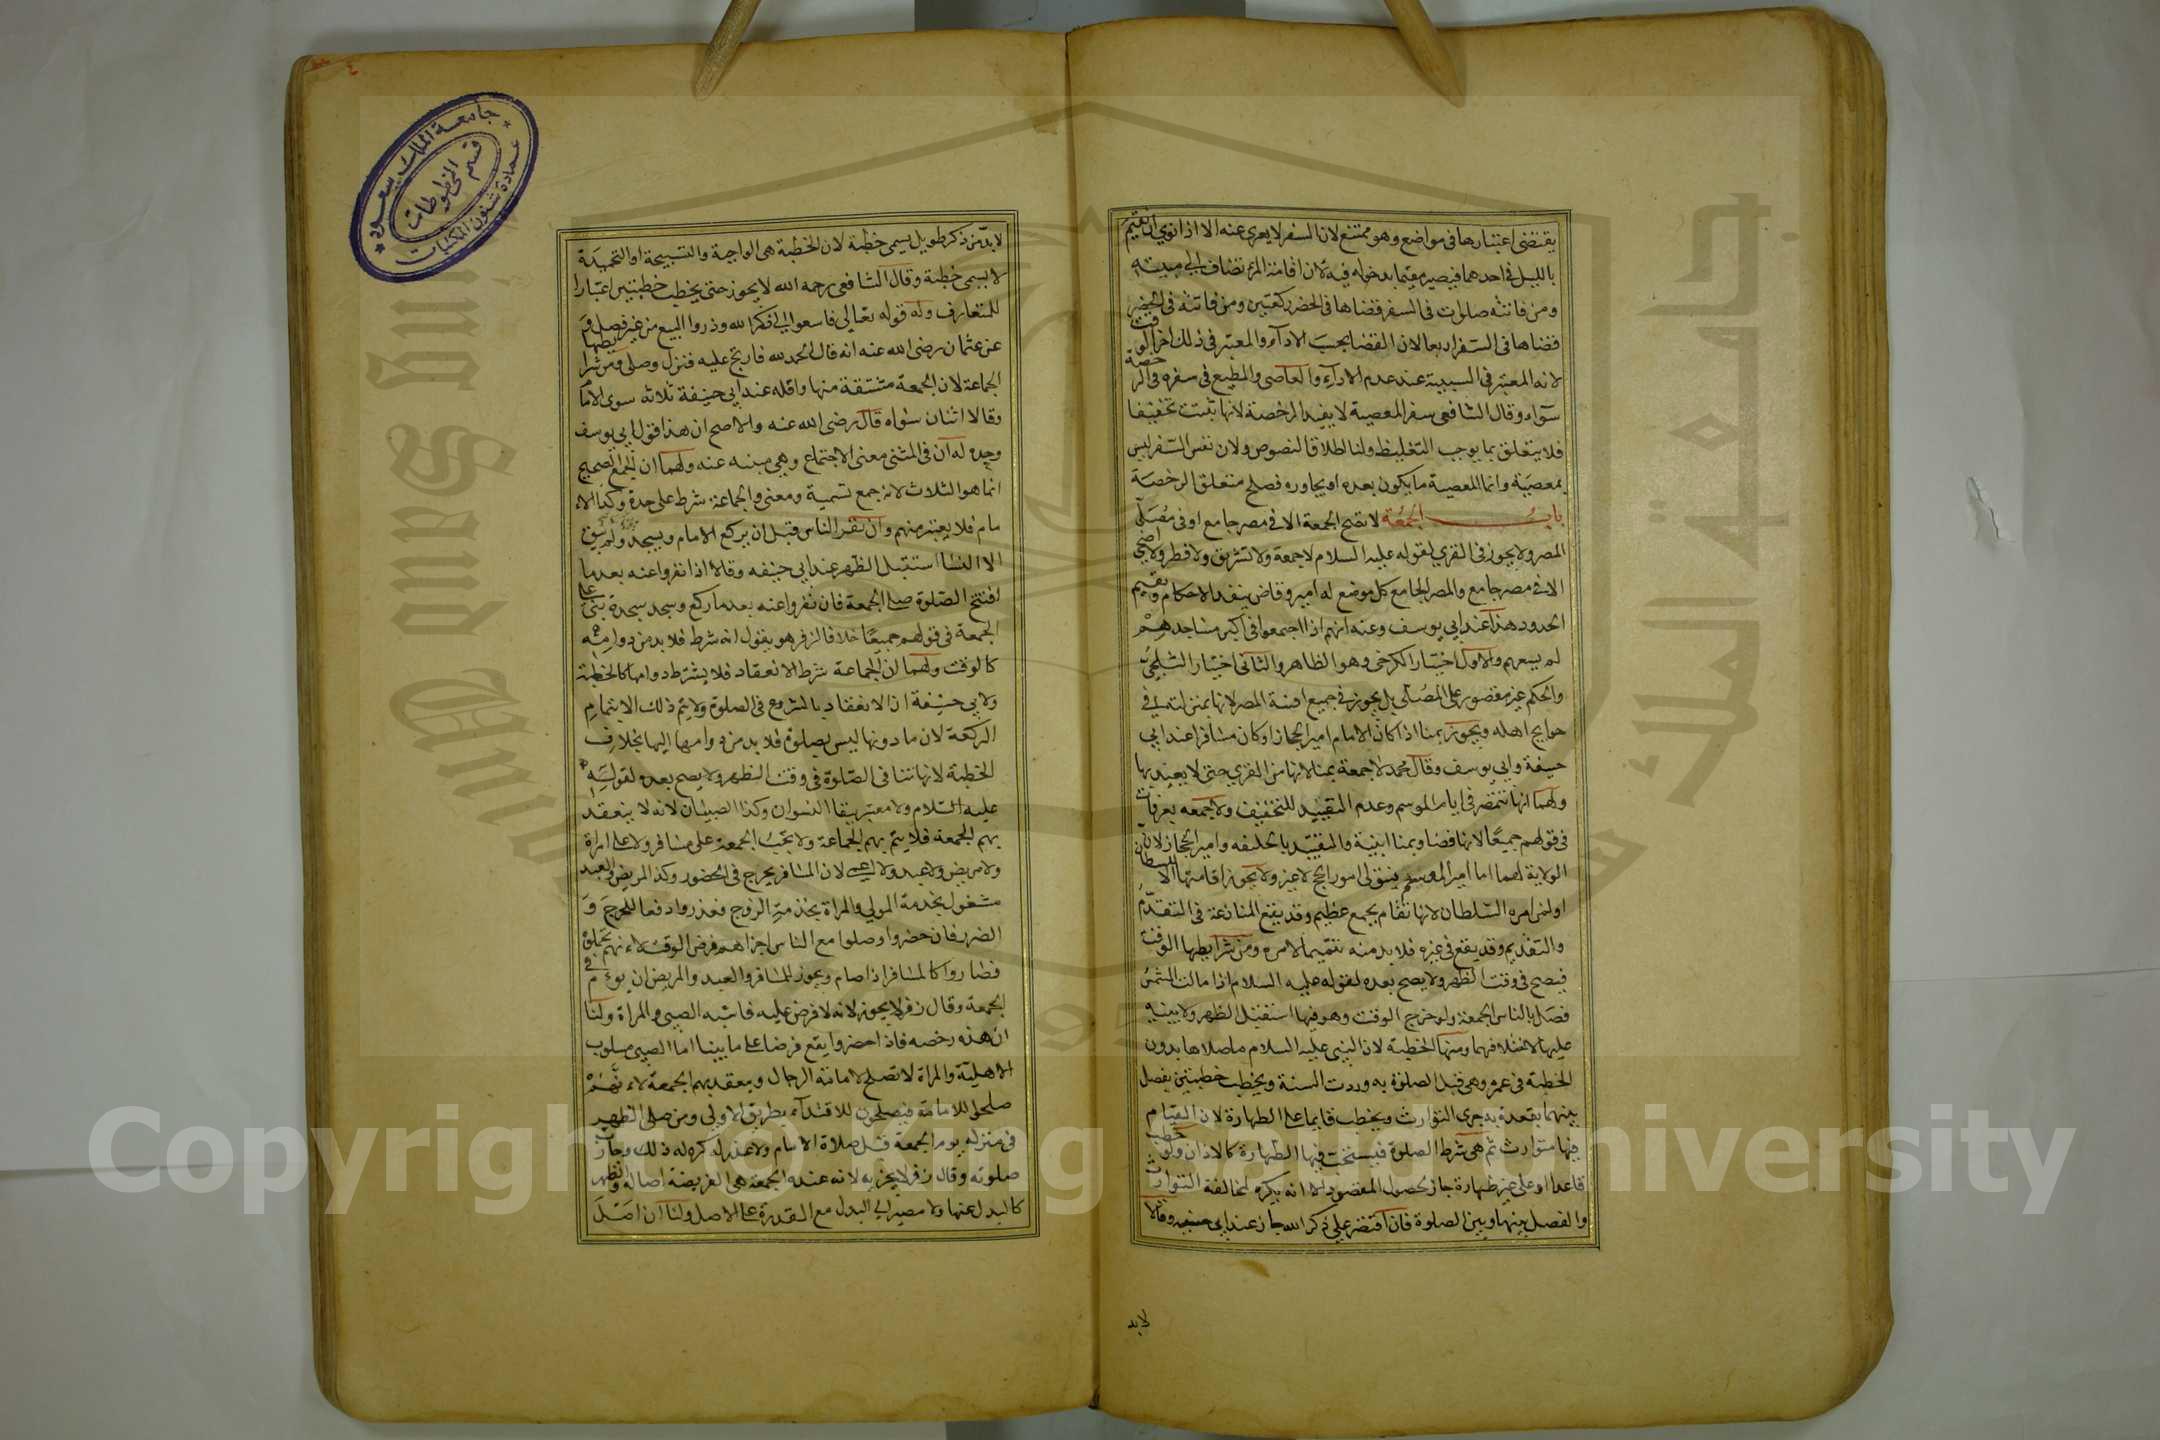 يقتضى اعتبارها فى مواضع وهو ممتنع لان السفر لا يعرى عنه الا اذا نوى ان يقيم
بالليل فى احدهما فيصير مقيما بدخوله فيه لان اقامة المرء تضاف الى مبيته
ومن فاتته صلوات فى السفر قضاها فى الحضر ركعتين ومن فاتته فى الحضر
قضاها فى السفر اربعا لان القضا بحسب الاداء والمعتبر فى ذلك اخر الوقت
لانه المعتبر فى السببية عند عدم الاداء والعاصى والمطيع فى سفره فى الرخصة
سواء وقال الشافعى سفر المعصية لا يفيد الرخصة لانها تثبت تخفيفا
فلا يتعلق بما يوجب التغليظ ولنا اطلاق النصوص ولان نفس السفر ليس
بمعصية وانما المعصية ما يكون بعده او يجاوره فصلح متعلق الرخصة
باب الجمعة لا تصح الجمعة الا فى مصر جامع او فى مصلى
المصر ولا يجوز فى القرى لقوله عليه السلام لا جمعة ولا تشريق ولا فطر ولا اضحى
الا فى مصر جامع والمصر الجامع كل موضع له امير وقاض ينفد الاحكام ويقيم
الحدود هذا عند ابى يوسف وعنه انهم اذا اجتمعوا فى اكبر مساجدهم
لم يسعهم والاول اختيار الكرخى وهو الظاهر والثانى اختيار الثلجى
والحكم غير مقصور على المصلى بل يجوز فى جميع افنية المصر لانها بمنزلته فى
حوايج اهله ويجوز بمنا اذا كان الامام امير الحجاز او كان مسافرا عند ابى
حنيفة وابى يوسف وقال محمد لا جمعة بمنا لانها من القرى حتى لا يعيد بها
ولهما انها تتمصر فى ايام الموسم وعدم التعييد للتخفيف ولا جمعه بعرفات
فى قولهم جميعا لانها فضا وبمنا ابنية والتقييد بالخليفه وامير الحجاز لان
الولاية لهما اما امير الموسم فيتولى امور الحج لا غير ولا يجوز اقامتها الا للسلطان
او لمن امره السلطان لانها تقام بجمع عظيم وقد يقع المنازعة فى التقدم
والتقديم وقد يقع فى غيره فلا بد منه تتميما لامره ومن شرايطها الوقت
فيصح فى وقت الظهر ولا يصح بعده لقوله عليه السلام اذا مالت الشمس
فصل بالناس الجمعة ولو خرج الوقت وهو فيها استقبل الظهر ولا يبنيه
عليها لاختلافهما ومنها الخطبة لان النبى عليه السلام ما صلاها بدون
الخطبة فى عمره وهى قبل الصلوة به وردت السنة ويخطب خطبتين يفصل
بينهما بقعدة به جرى التوارث ويخطب قايما على الطهارة لان القيام
فيها متوارث ثم هى شرط الصلوة فيستحب فيها الطهارة كالاذان ولو خطب
قاعدا او على غير طهارة جاز لحصول المقصود الا انه يكره لمخالفة التوارث
والفصل بينها وبين الصلوة فان اقتصر على ذكر الله جاز عند ابى حنيفه وقالا
لابد
لا بد من ذكر طويل يسمى خطبة لان الخطبة هى الواجبة والتسبيحة او التحميدة
لا يسمى خطبة وقال الشافعى رحمه الله لا يجوز حتى يخطب خطبتين اعتبارا
للمتعارف وله قوله تعالى فاسعوا الى ذكر الله وذروا البيع من غير فصل و
عن عثمان رضى الله عنه انه قال الحمد لله فارتج عليه فنزل وصلى ومن شرايطها
الجماعة لان الجمعة مشتقة منها واقله عند ابى حنيفة ثلاثه سوى الامام
وقالا اثنان سواه قال رضى الله عنه والاصح ان هذا قول ابى يوسف
وحده له ان فى المثنى معنى الاجتماع وهى مبنيه عنه ولهما ان الجمع الصحيح
انما هو الثلاث لانه جمع تسمية ومعنى والجماعة شرط على حدة وكذا الا
مام فلا يعتبر منهم وان نفر الناس قبل ان يركع الامام ويسجد ولم يبق
الا النسا استقبل الظهر عند ابى حنيفه وقالا اذا نفروا عنه بعد ما
افتتح الصلوة صلى الجمعة فان نفروا عنه بعد ما ركع وسجد سجدة بنى على
الجمعة فى قولهم جميعا خلافا لزفر هو يقول انه شرط فلا بد من دوامه
كالوقت ولهما ان الجماعة شرط الانعقاد فلا يشترط دوامها كالخطبة
ولابى حنيفة ان الانعقاد بالشروع فى الصلوة ولا يتم ذلك الا بتمام
الركعة لان ما دونها ليس بصلوة فلا بد من دوامها اليها بخلاف
الخطبة لانها تنا فى الصلوة فى وقت الظهر ولا يصح بعده لقوله
عليه السلام ولا معتبر ببقا النسوان وكذا الصبيان لانه لا ينعقد
بهم الجمعة فلا يتم بهم الجماعة ولا يجب الجمعة على مسافر ولا على امراة
ولا مريض ولا عبد ولا اعمى لان المسافر يحرج فى الحضور وكذا المريض والعبد
مشغول بخدمة المولى والمراة بخدمة الزوج فعذروا دفعا للحرج و
الضرر فان حضروا وصلوا مع الناس اجزاهم فرض الوقت لانهم تحملوه
فصاروا كالمسافر اذا صام ويجوز للمسافر والعبد والمريض ان يؤم فى
الجمعة وقال زفر لا يجوز لانه لا فرض عليه فاشبه الصبى والمراة ولنا
ان هذه رخصه فاذا حضروا يقع فرضا على ما بينا اما الصبى مسلوب
الاهلية والمراة لا تصلح لامامة الرجال وينعقد بهم الجمعة لانهم
صلحوا للامامة فيصلحون للاقتداء بطريق الاولى ومن صلى الظهر
فى منزله يوم الجمعة قبل صلاة الامام ولا عذر له كره له ذلك وجازت
صلوته وقال زفر لا يجزيه لانه عنده الجمعة هى الفريضة اصالة والظهر
كالبدل عنها ولا مصير الى البدل مع القدرة على الاصل ولنا ان اصل
جامعة الملك سعود
عمادة شئون المكتبات
قسم المخطوطات
Copyright © King Saud University